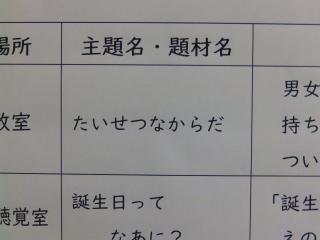 場所 主題名・題材名
教室 たいせつなからだ 男女
持ち
つい
聴覚室 誕生日って 「誕生
なあに? えの